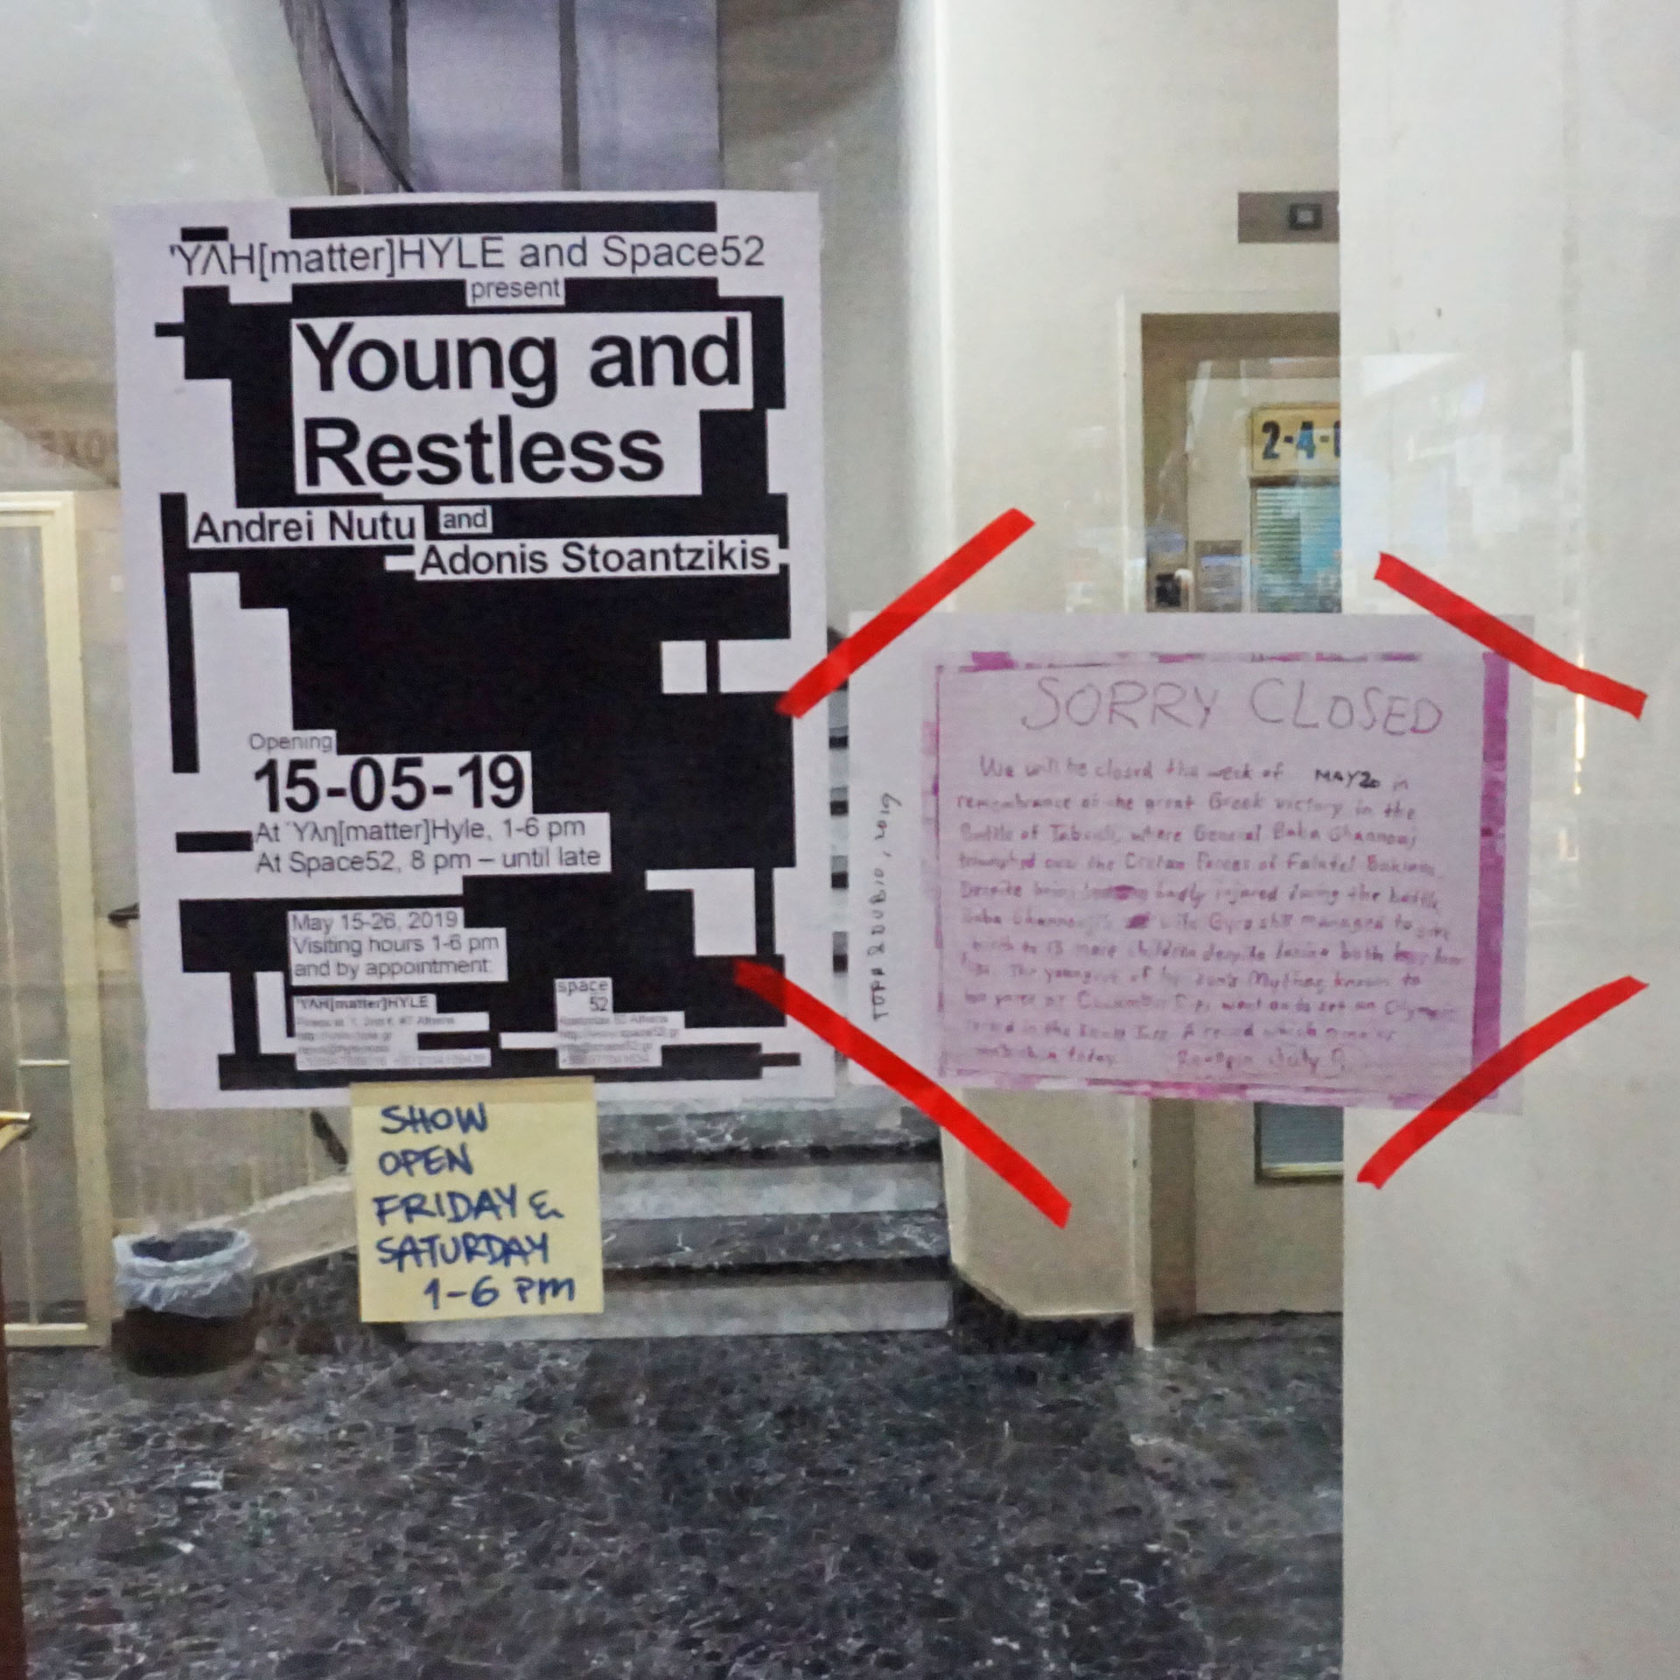 'ΥΛΗ[matter]HYLE and Space52
present
Young and
Restless
Andrei Nutu and
Adonis Stoantzikis
Opening
15-05-19
At Ύλη[matter]Hyle, 1-6 pm
At Space52, 8 pm – until late
May 15-26, 2019
Visiting hours 1-6 pm
and by appointment
'ΥΛΗ[matter]HYLE
space
52
SHOW
OPEN
FRIDAY &
SATURDAY
1-6 PM
2-4-
SORRY CLOSED
We will be closed the week of MAY 20 in
remembrance of the great Greek victory in the
Battle of Tabouli, where General Baba Ghannouj
triumphed over the Cretan Forces of Falafel
Despite being badly injured during the battle
Baba wife Gyro still managed to give
birth to 13 more children despite losing both
The youngest of Mythos, known to
went on to set an Olympic
record in the A record which
today.
, 2019